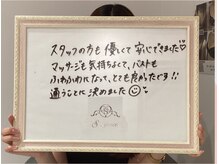 スタッフの方も優しくて安心できました♡
マッサージも気持ちよくて、バストも
ふわふわになって、とても良かったです!!
通うことに決めました☺♡